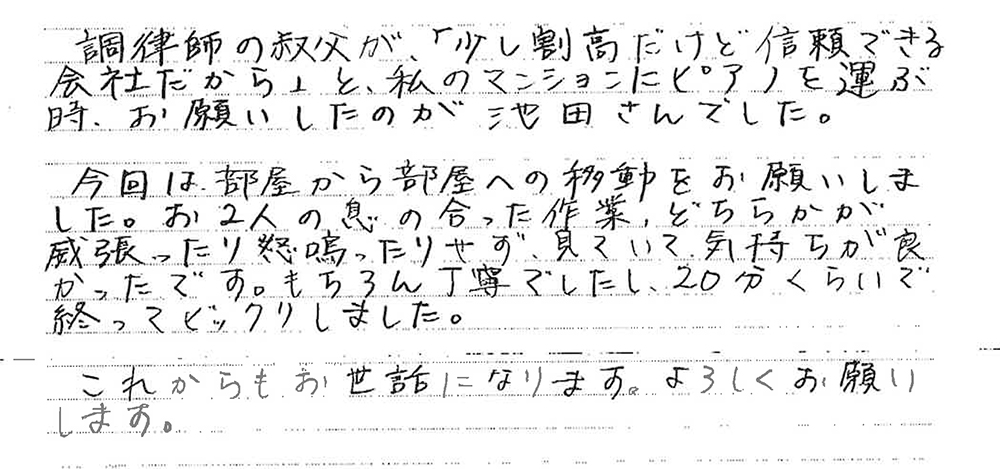 調律師の叔父が、「少し割高だけど信頼できる
会社だから」と、私のマンションにピアノを運ぶ
時、お願いしたのが池田さんでした。
今回は、部屋から部屋への移動をお願いしま
した。お2人の息の合った作業、どちらかが
威張ったり怒鳴ったりせず、見ていて、気持ちが良
かったです。もちろん丁寧でしたし、20分くらいで
終ってビックリしました。
これからもお世話になります。よろしくお願い
します。